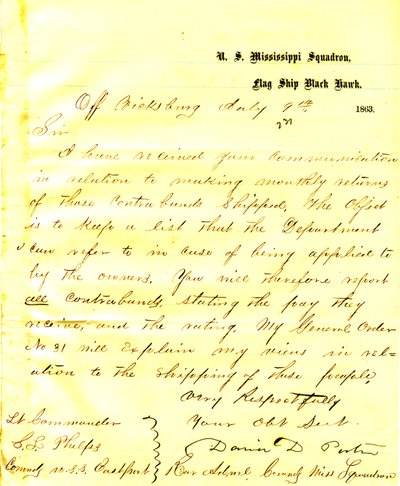 U. S. Mississippi Squadron,
Flag Ship Black Hawk.
Off Vicksburg July 9th 1863.
Sir
I have received your communication
in relation to making monthly returns
of those Contrabands Shipped, The Object
is to keep a list that the Department
can refer to in case of being applied to
by the owners. You will therefore report
all contrabands, stating the pay they
receive, and the rating. My General Order
No 31 will Explain my views in rel-
ation to the shipping of these people,
Very Respectfully
Your Obt Sevt.
David D Porter
Rear Admrl. Comdg Miss Squadron
Lt Commander
S. L. Phelps
Comdg U.S.S. Eastport